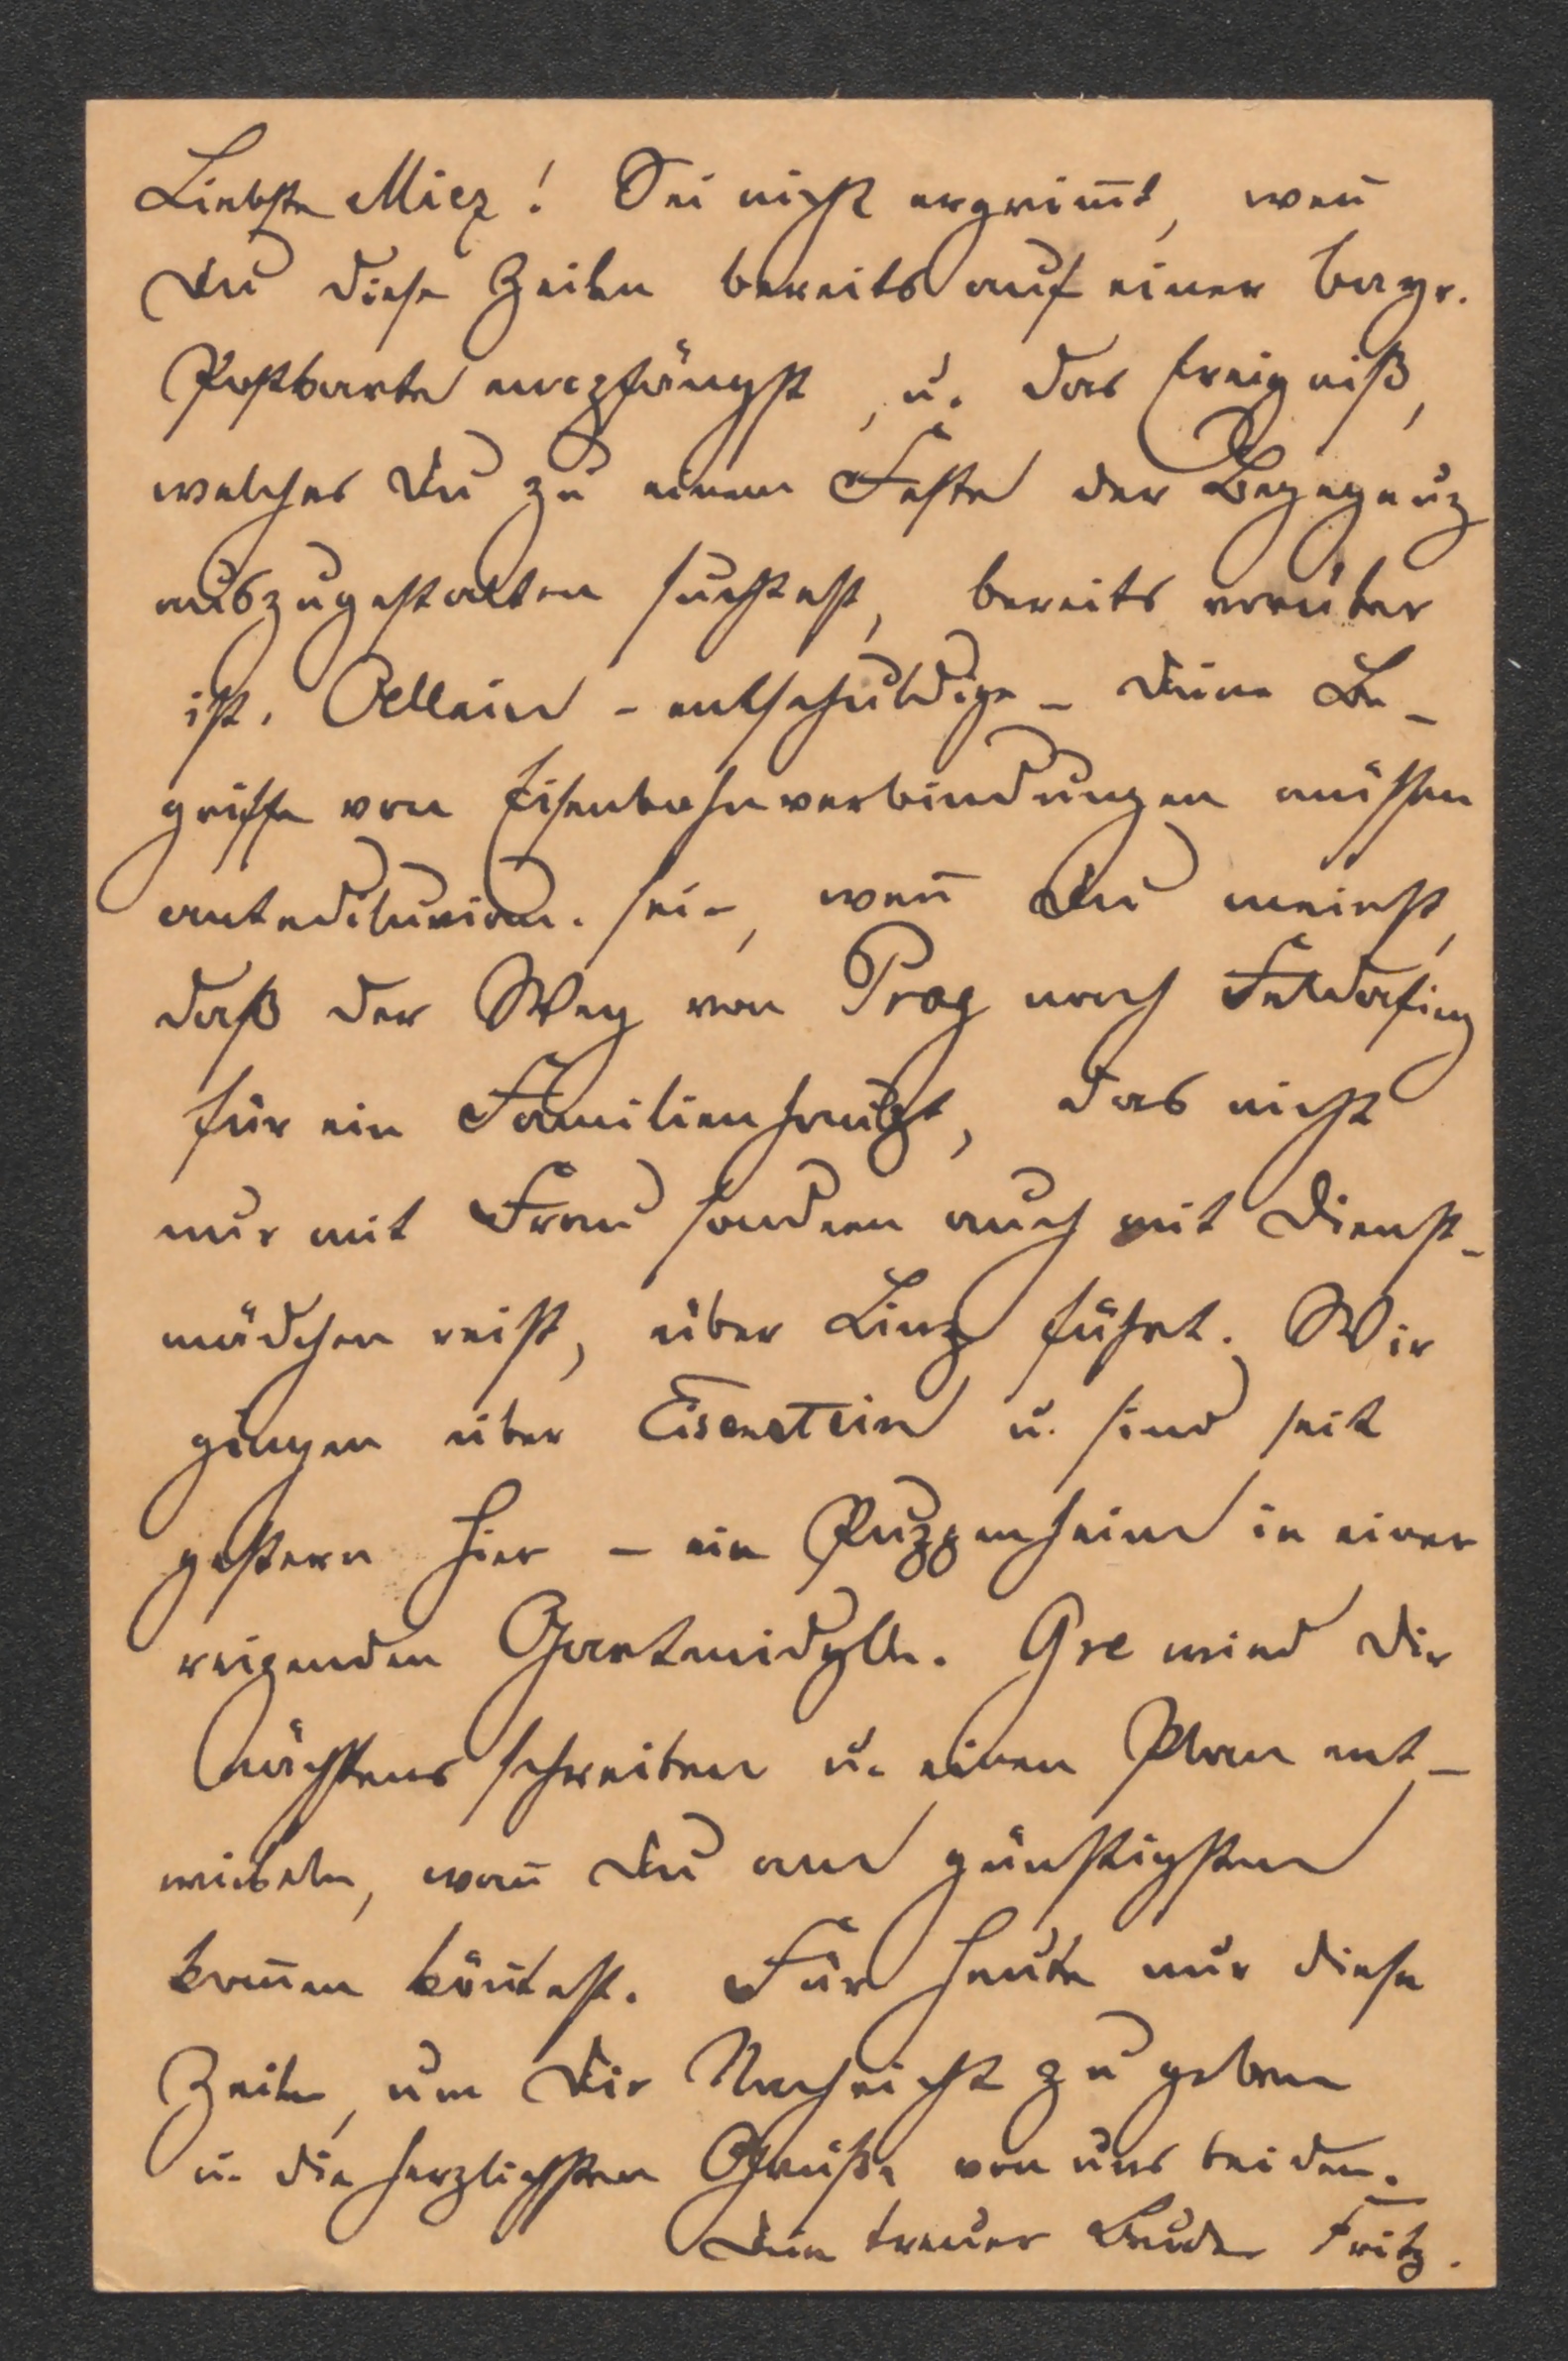 Liebste Miez! Sei nicht ergrim̄t, wen̄
Du diese Zeilen bereits auf einer bayr.
Postkarte empfängst, u. das Ereigniß,
welches Du zu einem Feste der Begegnung
auszugestalten suchtest, bereits vorüber
ist. Allein - entschuldige - Deine Be-
griffe von Eisenbahnverbindungen müssen
antediluvian. sein, wen̄ Du meinst,
daß der Weg von Prag nach Feldafing
für ein Familienhaupt, das nicht
nur mit Frau sondern auch mit Dienst-
mädchen reist, über Linz führt. Wir
gingen über Eisenstein u. sind seit
gestern hier – ein Puppenheim in einer
reizenden Gartenidylle. Gre wird Dir
nächstens schreiben u. einen Plan ent-
wickeln, wan̄ Du am günstigsten
kom̄en kön̄test. Für heute nur diese
Zeilen, um Dir Nachricht zu geben
u. die herzlichsten Grüße von uns beiden.
Dein treuer Bruder Fritz.